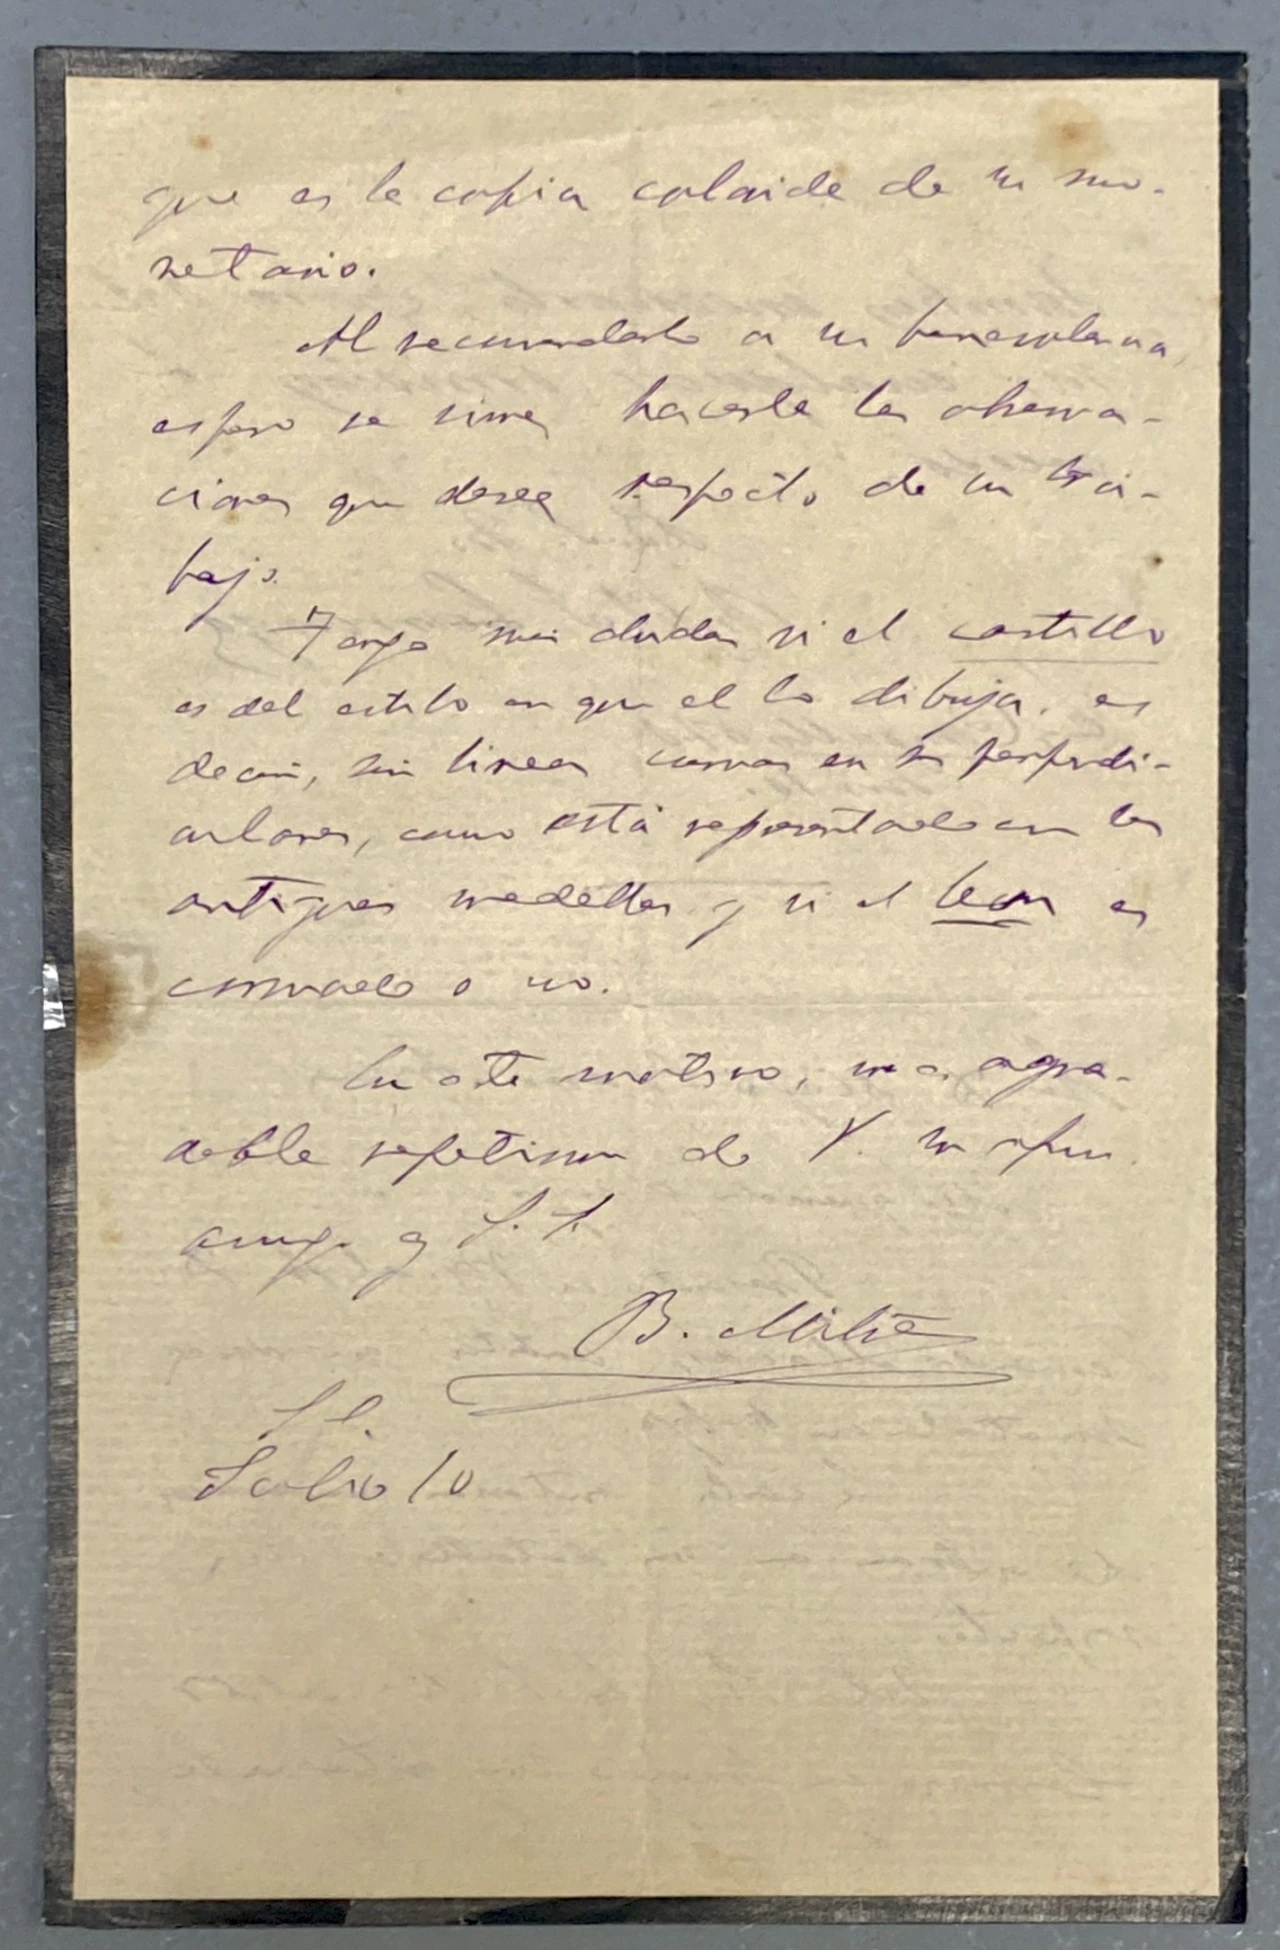 que es la copia colorida de su mo-
netario.
Al recomendarlo a su benevolencia,
espero se sirva hacerle las observa-
ciones que desee respecto de su tra-
bajo.
Tengo mis dudas si el castillo
es del estilo en que el lo dibuja, es
decir, sin lineas curvas en sus perpendi-
culares, como está representado en las
antiguas medallas y si el leon es
coronado o no.
Con este motivo, me es agra-
dable repetirme de V. su afmo.
amigo y S. S.
B. Mitre
S/C.
Julio 10